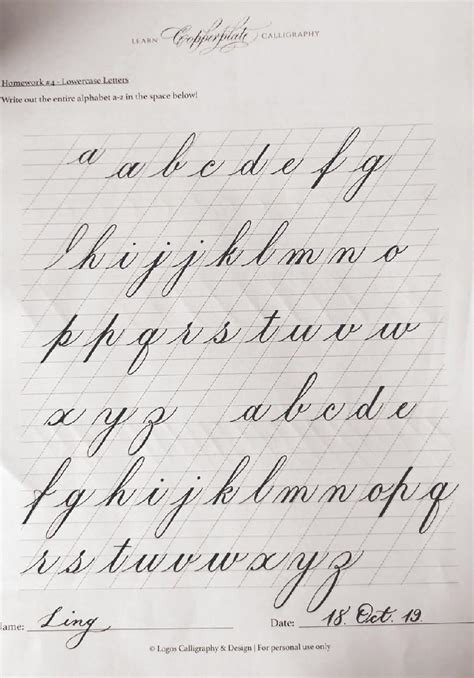 LEARN Copperplate CALLIGRAPHY
Homework #4 - Lowercase Letters
Write out the entire alphabet a-z in the space below!
a a b c d e f g
h i j j k l m n o
p p q r s t u v w
x y z a b c d e
f g h i j k l m n o p q
r s t u v w x y z
Name: Ling Date: 18. Oct. 19.
© Logos Calligraphy & Design | For personal use only